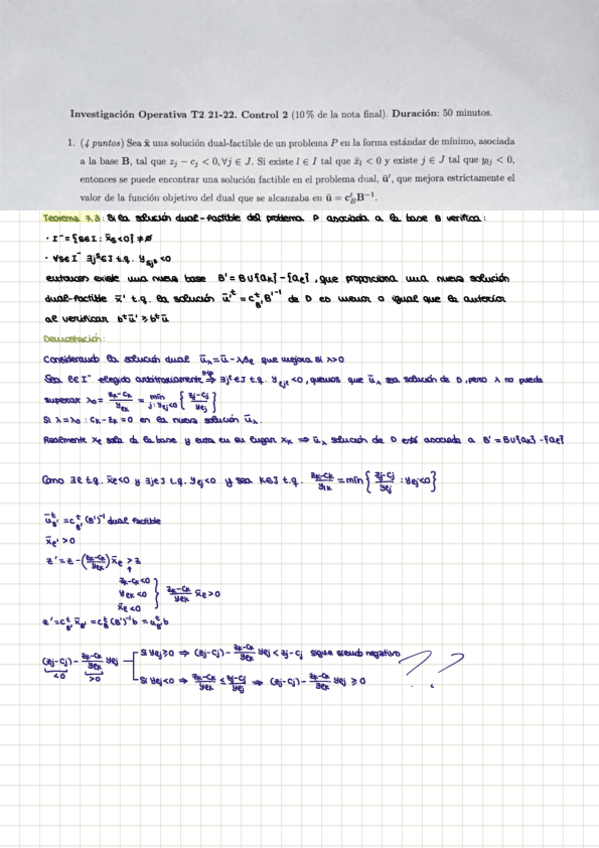 Investigación Operativa T2 21-22. Control 2 (10% de la nota final). Duración: 50 minutos.
1. (4 puntos) Sea x̄ una solución dual-factible de un problema P en la forma estándar de mínimo, asociada
a la base B, tal que zj − cj < 0, ∀j ∈ J. Si existe l ∈ I tal que x̄l < 0 y existe j ∈ J tal que ylj < 0,
entonces se puede encontrar una solución factible en el problema dual, ū', que mejora estrictamente el
valor de la función objetivo del dual que se alcanzaba en ū = cᵗB B⁻¹.
Teorema 7.3: Si la solución dual-factible del problema P asociada a la base B verifica:
· I⁻ = {s∈I : x̄s<0} ≠ ∅
· ∀s∈I⁻ ∃jˢ∈J t.q. ysjˢ <0
entonces existe una nueva base B' = B∪{ak} - {ae}, que proporciona una nueva solución
dual-factible x̄' t.q. la solución ū'ᵗ = cᵗB' B'⁻¹ de D es menor o igual que la anterior
al verificar bᵗū' ≥ bᵗū
Demostración:
Considerando la solución dual ūλ = ū - λβe que mejora si λ>0
Sea e∈I⁻ elegido arbitrariamente ⇒ ∃jᵉ∈J t.q. yejᵉ <0, queremos que ūλ sea solución de D, pero λ no puede
superar λ0 = zk-ck / yek = mín j:yej<0 { zj-cj / yej }
Si λ = λ0 : ck - zk = 0 en la nueva solución ūλ.
Realmente xe sale de la base y entra en su lugar xk ⇒ ūλ solución de D está asociada a B' = B∪{ak} - {ae}
Como ∃e t.q. x̄e<0 y ∃j∈J t.q. yej<0 y sea k∈J t.q. zk-ck / yek = mín{ zj-cj / yej : yej<0 }
ūᵗB' = cᵗB' (B')⁻¹ dual factible
x̄e' > 0
z' = z - (zk-ck / yek) x̄e > z
zk-ck <0
yek <0
x̄e <0
zk-ck / yek x̄e > 0
z' = cᵗB' x̄B' = cᵗB' (B')⁻¹ b = uᵗB' b
(zj-cj) - zk-ck / yek yej
<0
>0
Si yej ≥ 0 ⇒ (zj-cj) - zk-ck / yek yej < zj-cj sigue siendo negativo
Si yej < 0 ⇒ zk-ck / yek ≤ zj-cj / yej ⇒ (zj-cj) - zk-ck / yek yej ≥ 0
? ?